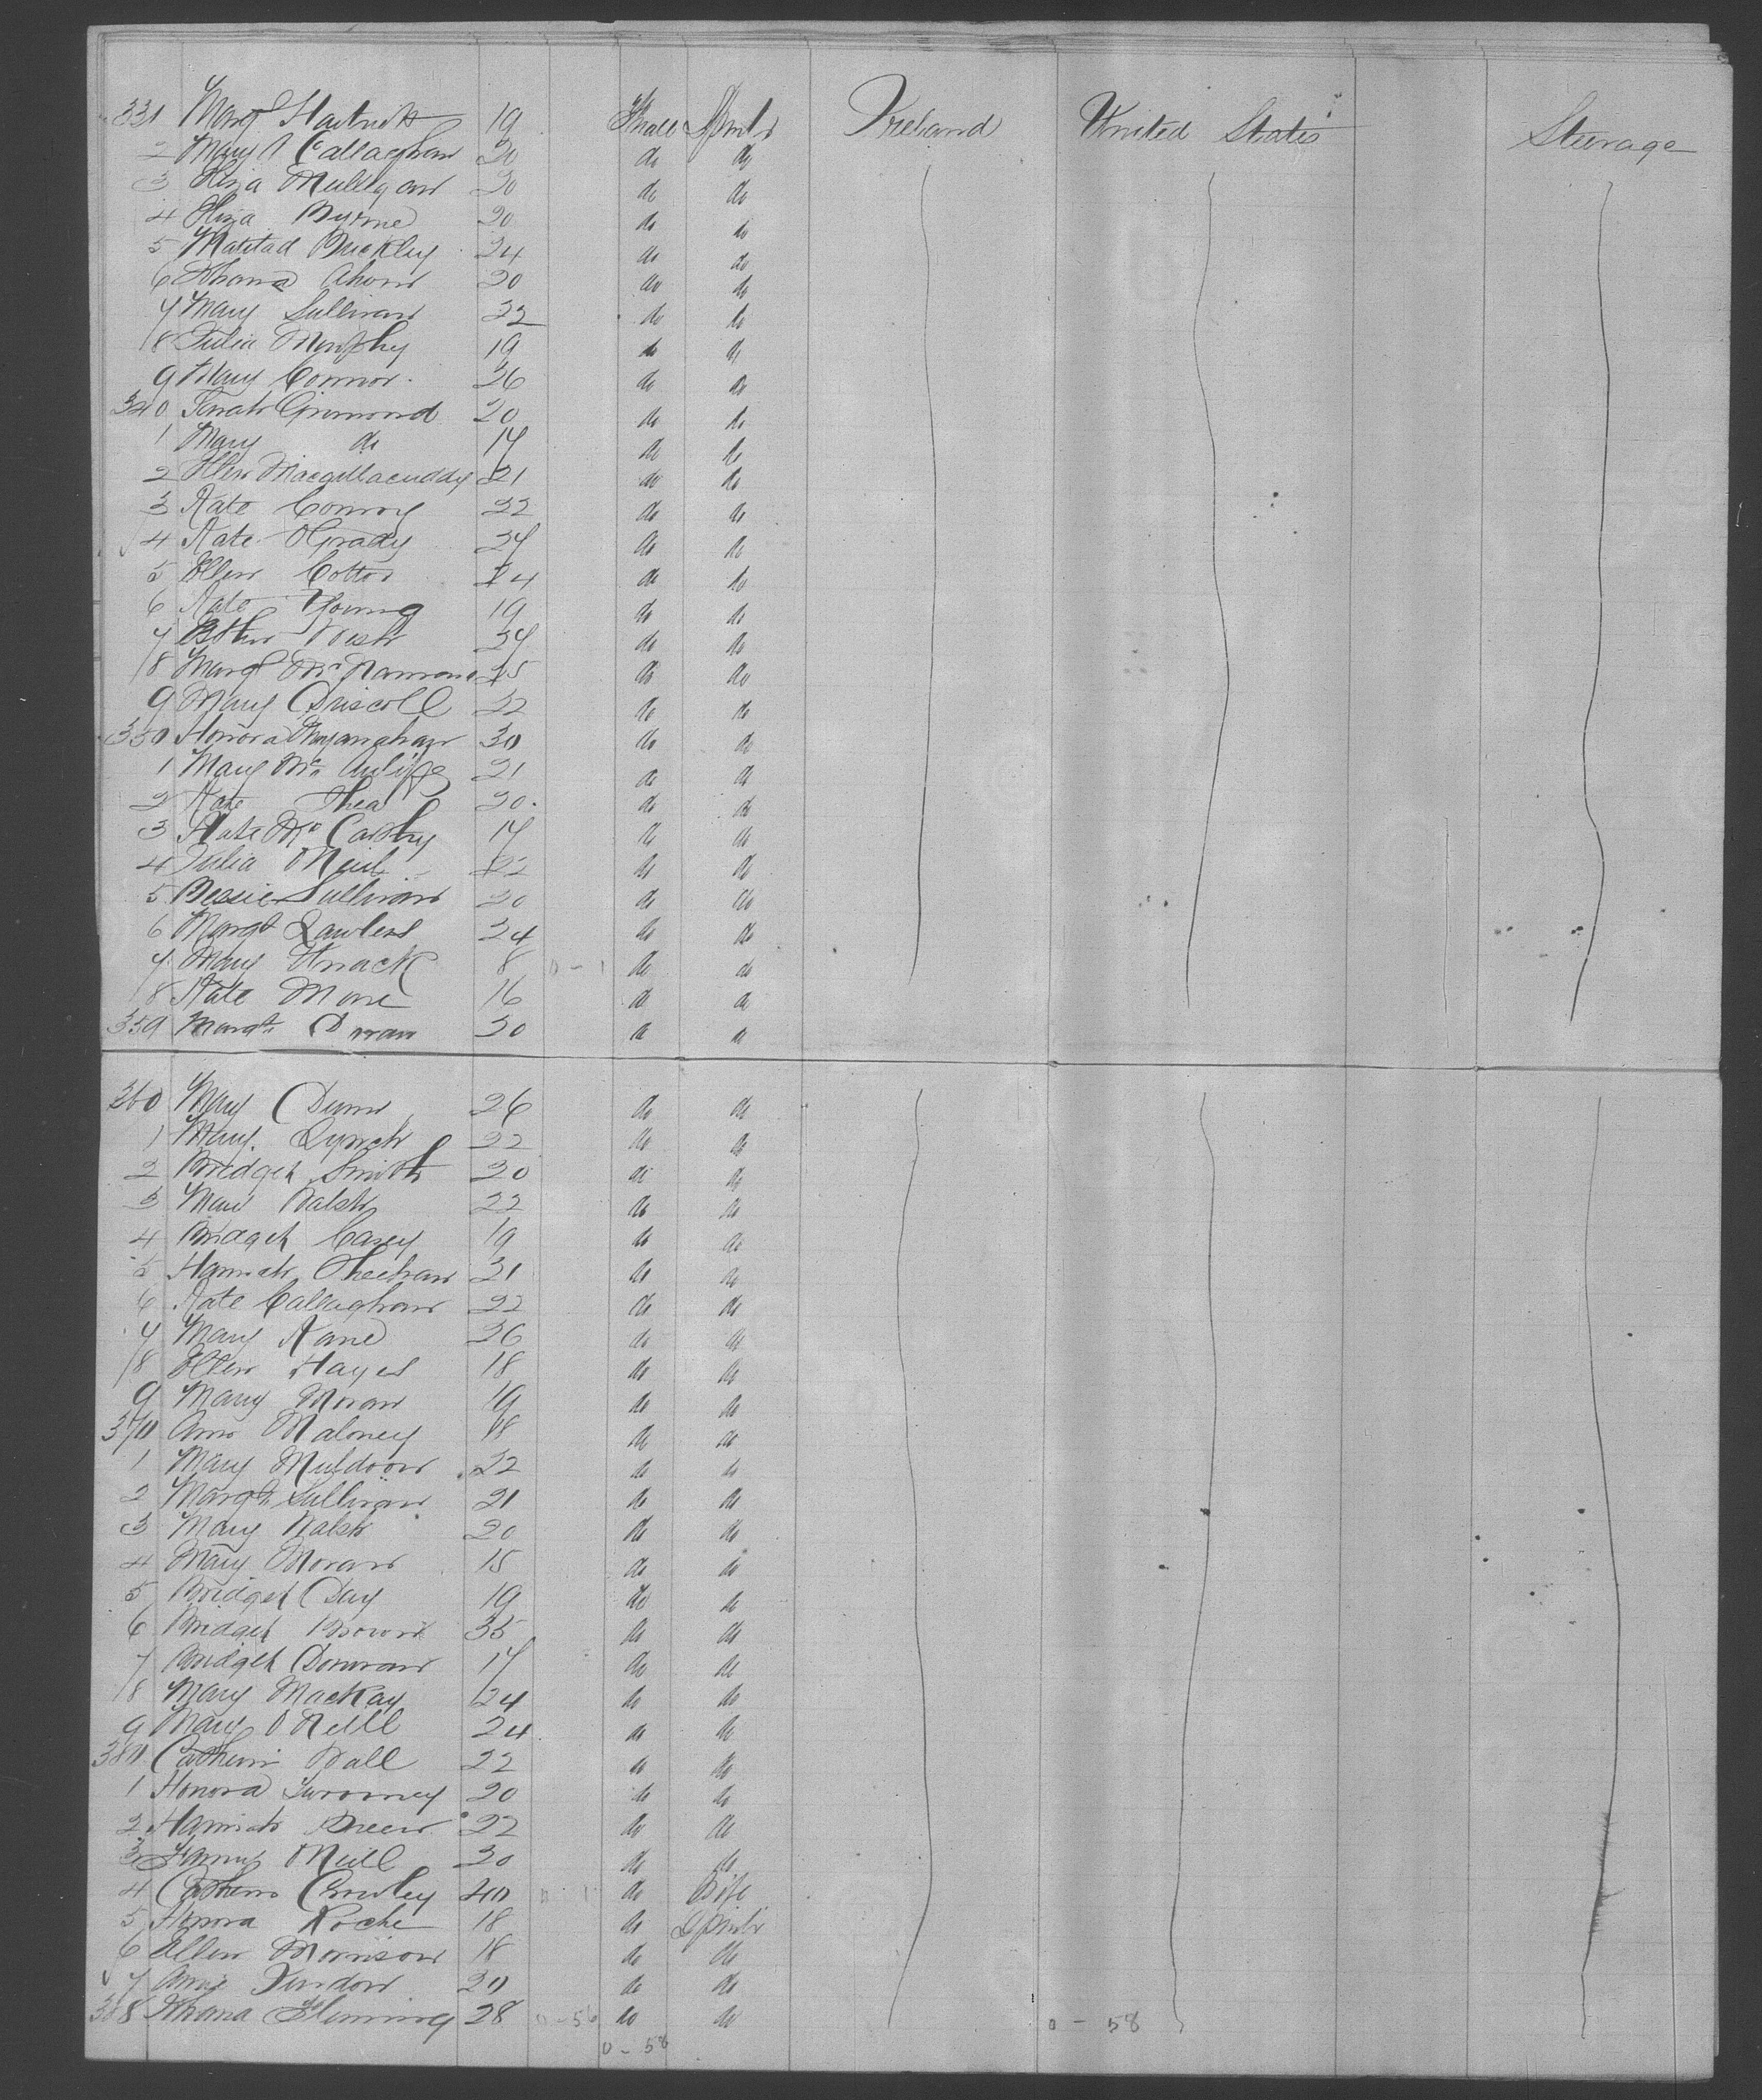 331 Margt Hartnett 19 Female Spinstr Ireland United States Steerage
2 Mary A Callaghan 20 do do
3 Eliza Mulligan 20 do do
4 Eliza Byrne 20 do do
5 Buckley 24 do do
6 Johana Ahern 20 do do
7 Mary Sullivan 22 do do
8 Julia Murphy 19 do do
9 Mary Connor 26 do do
340 Sarah Grimond 20 do do
1 Mary do 17 do do
2 Ellen Macgillacuddy 21 do do
3 Kate Conroy 22 do do
4 Kate OGrady 27 do do
5 Ellen Cotter 24 do do
6 Kate Young 19 do do
7 Esther 27 do do
8 Margt McNamara 25 do do
9 Mary Driscoll 22 do do
350 Honora Moynahan 30 do do
1 Mary Mc Auliffe 21 do do
2 Kate Shea 20 do do
3 Kate Mc Carthy 17 do do
4 Julia ONeil 22 do do
5 Bessie Sullivan 20 do do
6 Margt Lawless 24 do do
7 Mary 8 0-1 do do
8 Kate More 16 do do
359 Margt 30 do do
360 Mary Dunn 26 do do
1 Mary Lynch 22 do do
2 Bridget Smith 20 do do
3 Mary Walsh 22 do do
4 Bridget Casey 19 do do
5 Hannah Sheehan 21 do do
6 Kate Callaghan 22 do do
7 Mary Kane 26 do do
8 Ellen Hayes 18 do do
9 Mary Moran 19 do do
370 Ann Maloney 18 do do
1 Mary Muldoon 22 do do
2 Margt Sullivan 21 do do
3 Mary Walsh 20 do do
4 Mary Moran 15 do do
5 Bridget Day 19 do do
6 Bridget Brown 35 do do
7 Bridget Donovan 17 do do
8 Mary MacKay 24 do do
9 Mary ONeill 24 do do
380 Catherin Wall 22 do do
1 Honora Twomey 20 do do
2 Hannah 22 do do
3 Fanny ONeill 30 do do
4 Cathern Crowley 40 0 1 do Wife
5 Honora Roche 18 do Spinstr
6 Ellen Morrison 18 do do
7 Annie 20 do do
388 Johana Fleming 28 0-56 do do 0-58
0-58